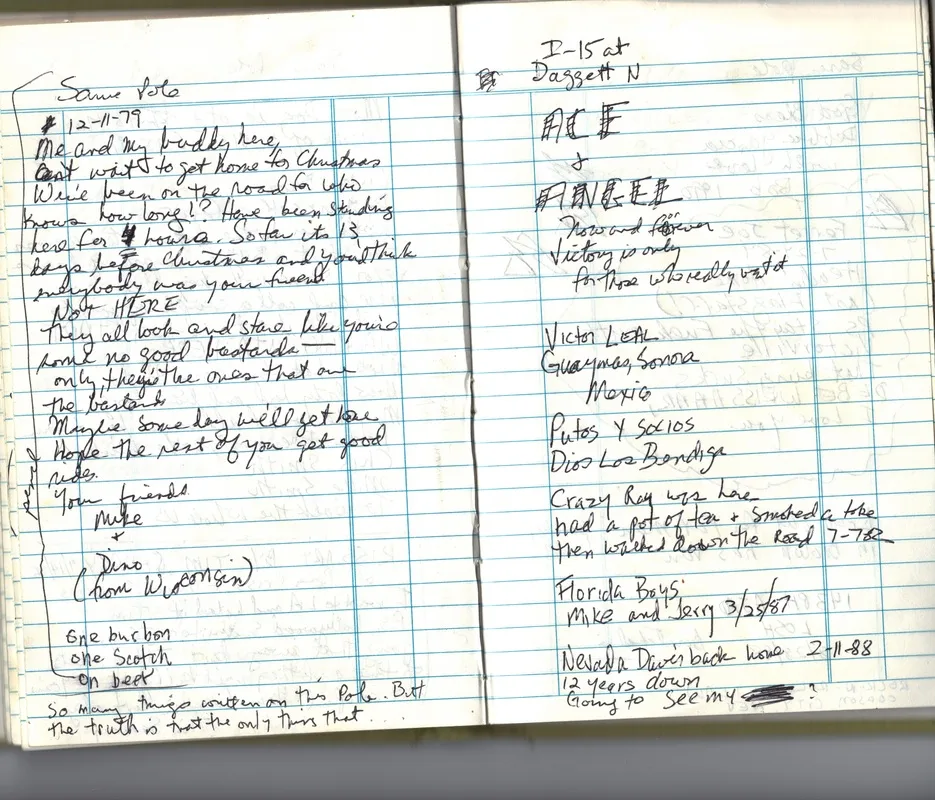 Same Pole
12-11-79
Me and my buddy here,
Can't wait to get home for Christmas
We've been on the road for who
knows how long!? Have been standing
here for 4 hours. So far its 13
days before Christmas and you'd think
everybody was your friend.
NOT HERE
They all look and stare like you're
some no good bastards
only, they're the ones that are
the bastards
Maybe some day we'll get home
Hope the rest of you get good
rides.
Your friends
Mike
+
Dino
(from Wisconsin)
One burbon
one Scotch
on beer
So many things written on this Pole. But
the truth is not the only thing that ...
I-15 at
Daggett N
ACE
+
ANGEL
Now and forever
Victory is only
for those who really want it
Victor LEAL
Guaymas, Sonora
Mexico
Putos Y Socios
Dios Los Bendiga
Crazy Ray was here
had a pot of tea + smoked a toke
then walked down the Road 7-782
Florida Boys
Mike and Jerry 3/25/87
Nevada Davis back home 2-11-88
12 years down
Going to see my ?